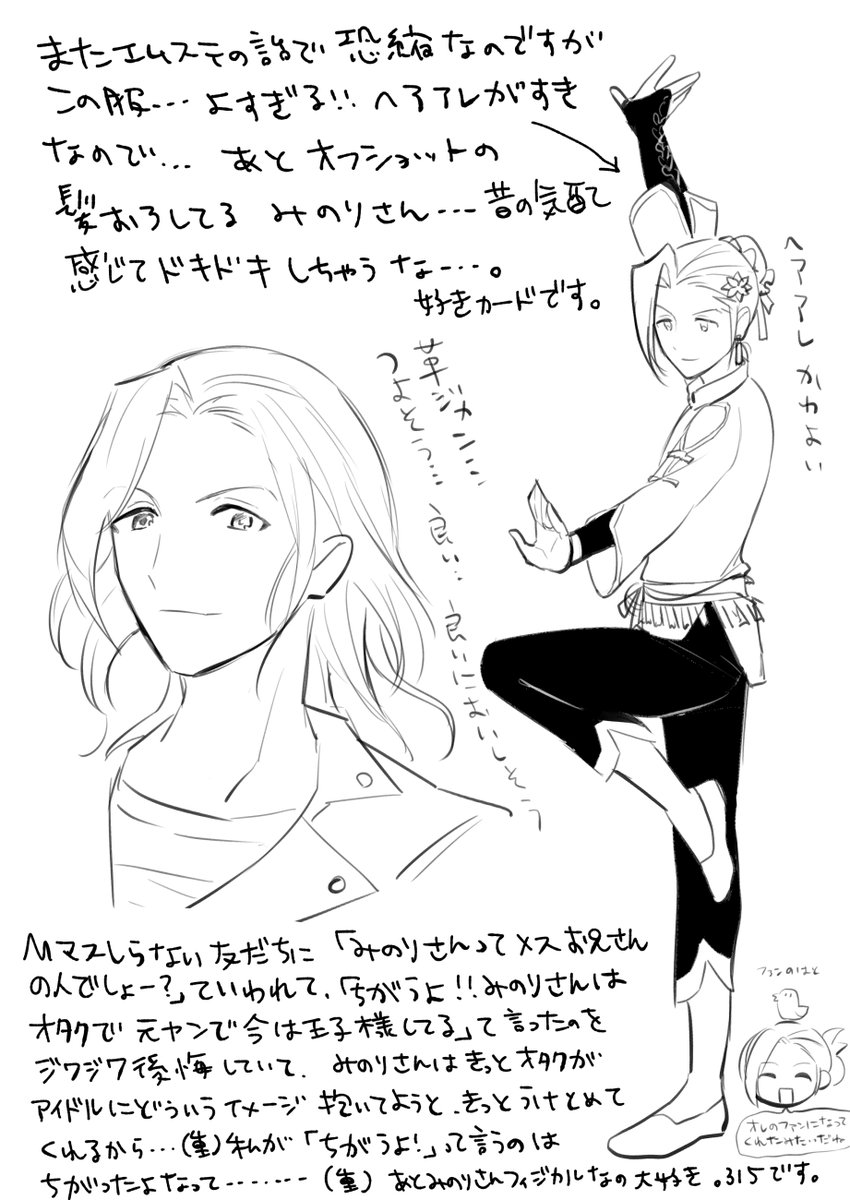 またエムステの話で恐縮なのですが
この服…よすぎる!!ヘアアレがすき
なので… あと オフショットの
髪おろしてる みのりさん…昔の気配て
感じて ドキドキ しちゃうな…。
好きカードです。
ヘアアレ かわよい
革ジャン…
つよそう… 良い… 良いにおいしそう
Mマスしらない友だちに「みのりさんってメスお兄さん
の人でしょー?」ていわれて、「ちがうよ!!みのりさんは
オタクで元ヤンで今は王子様してる」て言ったのを
ジワジワ後悔していて、みのりさんはきっとオタクが
アイドルにどういうイメージ抱いてようと、きっとうけとめて
くれるから…(重)私が「ちがうよ!」って言うのは
ちがったよなって………(重) あとみのりさんフィジカルなの大好き。315です。
ファンのはと
オレのファンになって
くれたみたいだね